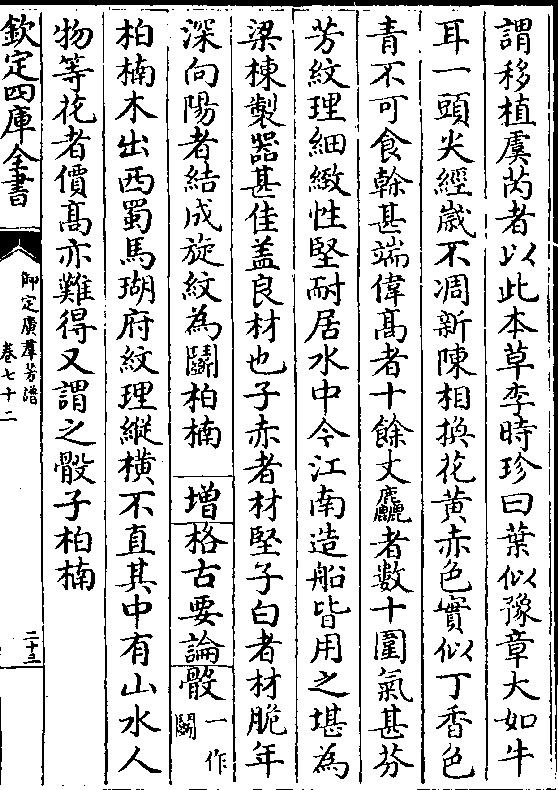 謂移植虞芮者以此本草李時珍曰葉似豫章大如牛
耳一頭尖經歲不凋新陳相換花黃赤色實似丁香色
青不可食幹甚端偉髙者十餘丈麤者數十圍氣甚芬
芳紋理細緻性堅耐居水中今江南造船皆用之堪為
梁棟製器甚佳盖良材也子赤者材堅子白者材脆年
深向陽者結成旋紋為鬬柏楠 增格古要論骰一作鬬
柏楠木出西蜀馬瑚府紋理縱橫不直其中有山水人
物等花者價髙亦難得又謂之骰子柏楠
欽定四庫全書
御定廣羣芳譜
卷七十二
二十三